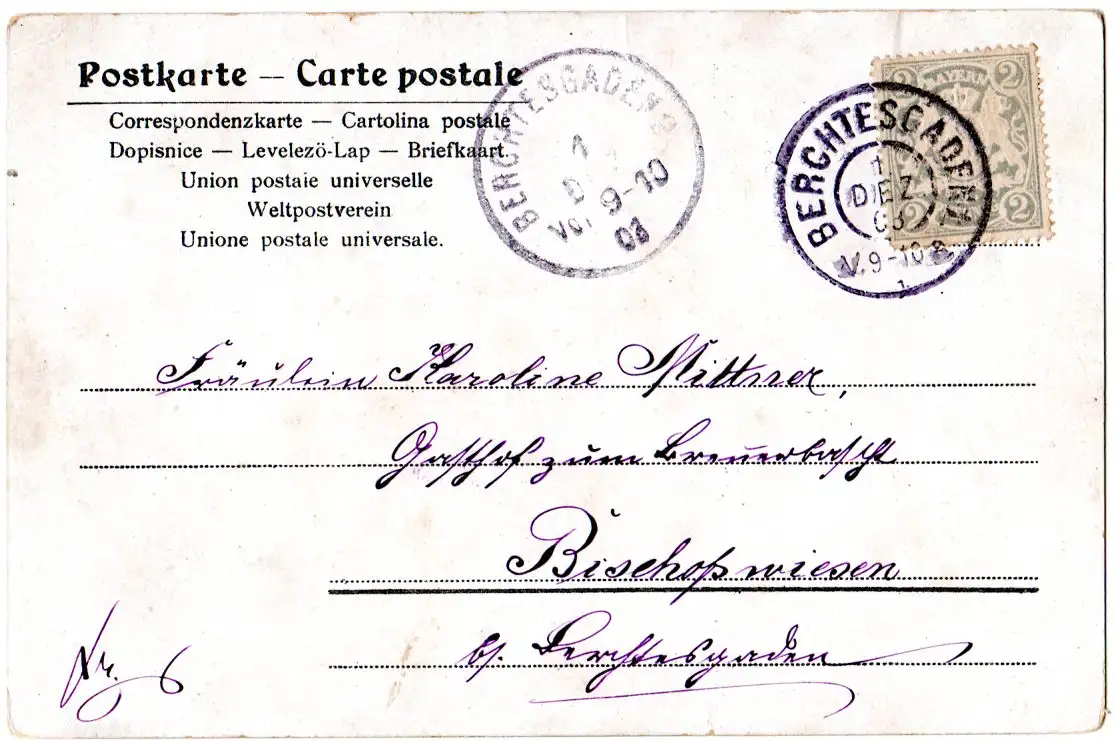 Postkarte — Carte postale
Correspondenzkarte — Cartolina postale
Dopisnice — Levelezö-Lap — Briefkaart.
Union postale universelle
Weltpostverein
Unione postale universale.
BERCHTESGADEN 2
1
D
Vor 9-10
03
BAYERN
2 2
2 2
BERCHTESGADEN 1
1
DEZ
03
V. 9-10
Fräulein Karoline Mittner,
Gasthof zum
Bischofswiesen
b/. Berchtesgaden
Nr. 6